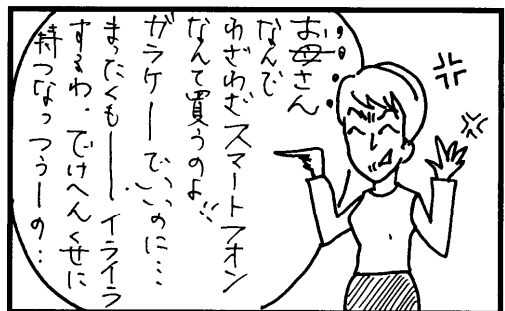 お母さん
なんで
わざわざスマートフォン
なんて買うのよ!!
ガラケーでいいのに…
まったくもーーイライラ
するわ。でけへんくせに
持つなっつうーの…